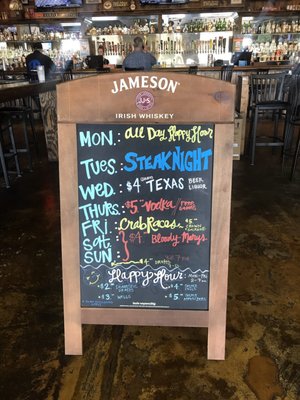 JAMESON
JJ&S
IRISH WHISKEY
MON.: All Day Happy Hour
TUES.: STEAK NIGHT
WED.: $4 TEXAS BEER LIQUOR
THURS.: $5 Vodka
FRI.: Crab Races
SAT. $4 Bloody Marys
SUN.:
Happy Hour
$2 $4
$3 WELLS $5 APPETIZERS